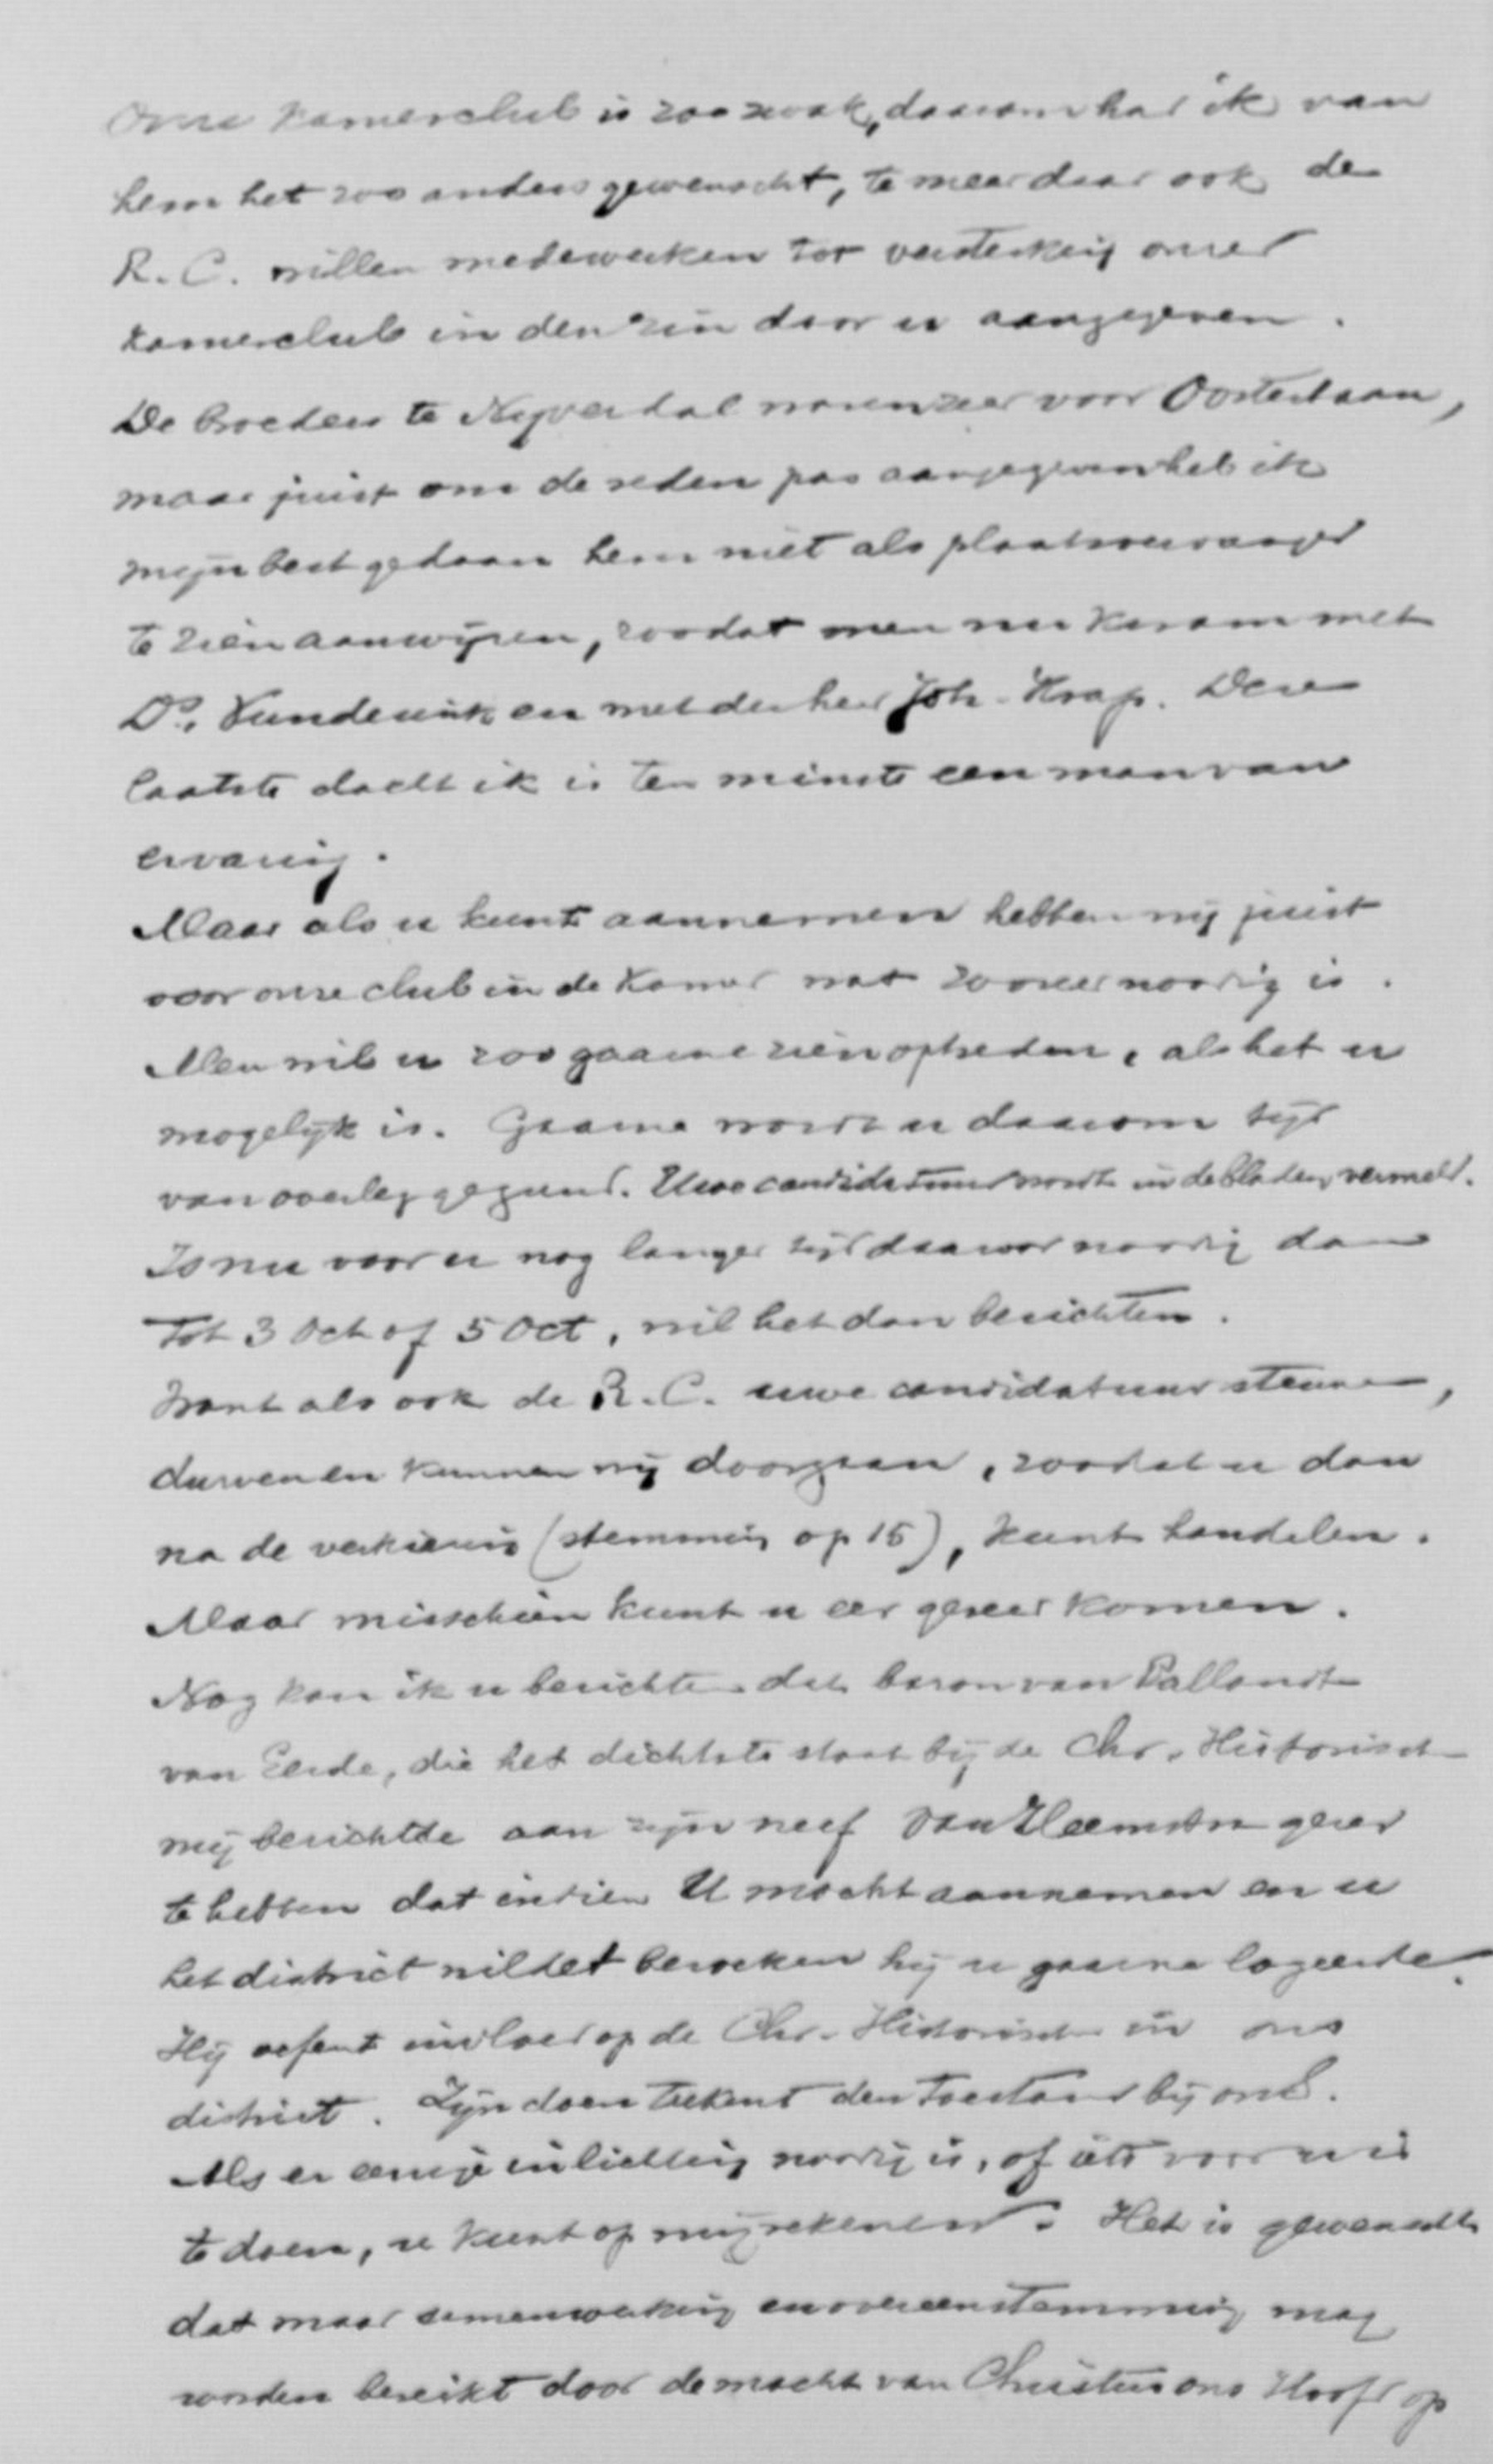 Onze Kamerclub is zoo zwak, daarom had ik van
hem het zoo anders gewenscht, te meer daar ook de
R.C. willen medewerken tot versterking onzer
Kamerclub in den zin door u aangegeven.
De broeders te Nijverdal waren zeer voor Oosterbaan,
maar juist om de reden pas aangegeven heb ik
mijn best gedaan hem niet als plaatsvervanger
te zien aanwijzen, zoodat men nu kwam met
Ds. en met den heer Joh. Krap. Deze
laatste dacht ik is ten minste een man van
ervaring.
Maar als u kunt aannemen hebben wij juist
voor onze club in de Kamer wat zoo zeer noodig is.
Men wil u zoo gaarne zien optreden, als het u
mogelijk is. Gaarne wordt u daarom tijd
van overleg gegund. Uwe candidatuur wordt in de bladen vermeld.
Is nu voor u nog langer tijd daarvoor noodig dan
tot 3 Oct of 5 Oct, wil het dan berichten.
Want als ook de R.C. uwe candidatuur steunen,
durven en kunnen wij doorgaan, zoodat u dan
na de verkiezing (stemming op 15), kunt handelen.
Maar misschien kunt u eer gereed komen.
Nog kan ik u berichten dat baron van Pallandt
van Eerde, die het dichtste staat bij de Chr. Historisch
mij berichtte aan zijn neef van Heemstra geres
te hebben dat indien U mocht aannemen en u
het district wildet bezoeken hij u gaarne logeerde.
Hij oefent invloed op de Chr. Historisch in ons
district. Zijn doen teekent den toestand bij ons.
Als er eenige inlichting noodig is, of iets voor u is
te doen, u kunt op mij rekenen. Het is gewenscht
dat maar samenwerking en overeenstemming mag
worden bereikt door de macht van Christus ons Hoofd op